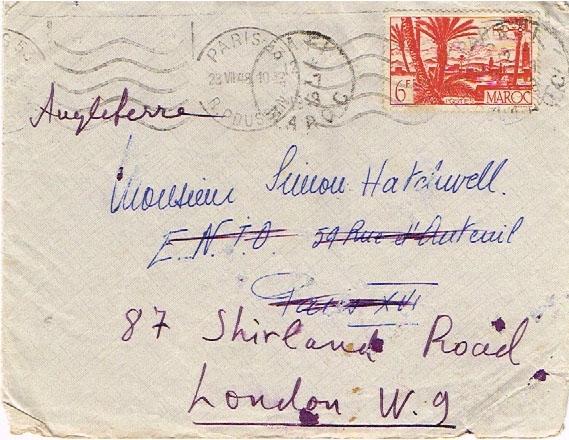 PARIS
R. POUSSIN
MAROC
6F
MAROC
Angleterre
Monsieur Simon Hatchwell.
E.N.I.O. 59 Rue d'Auteuil
Paris XVI
87 Shirland Road
London W.9